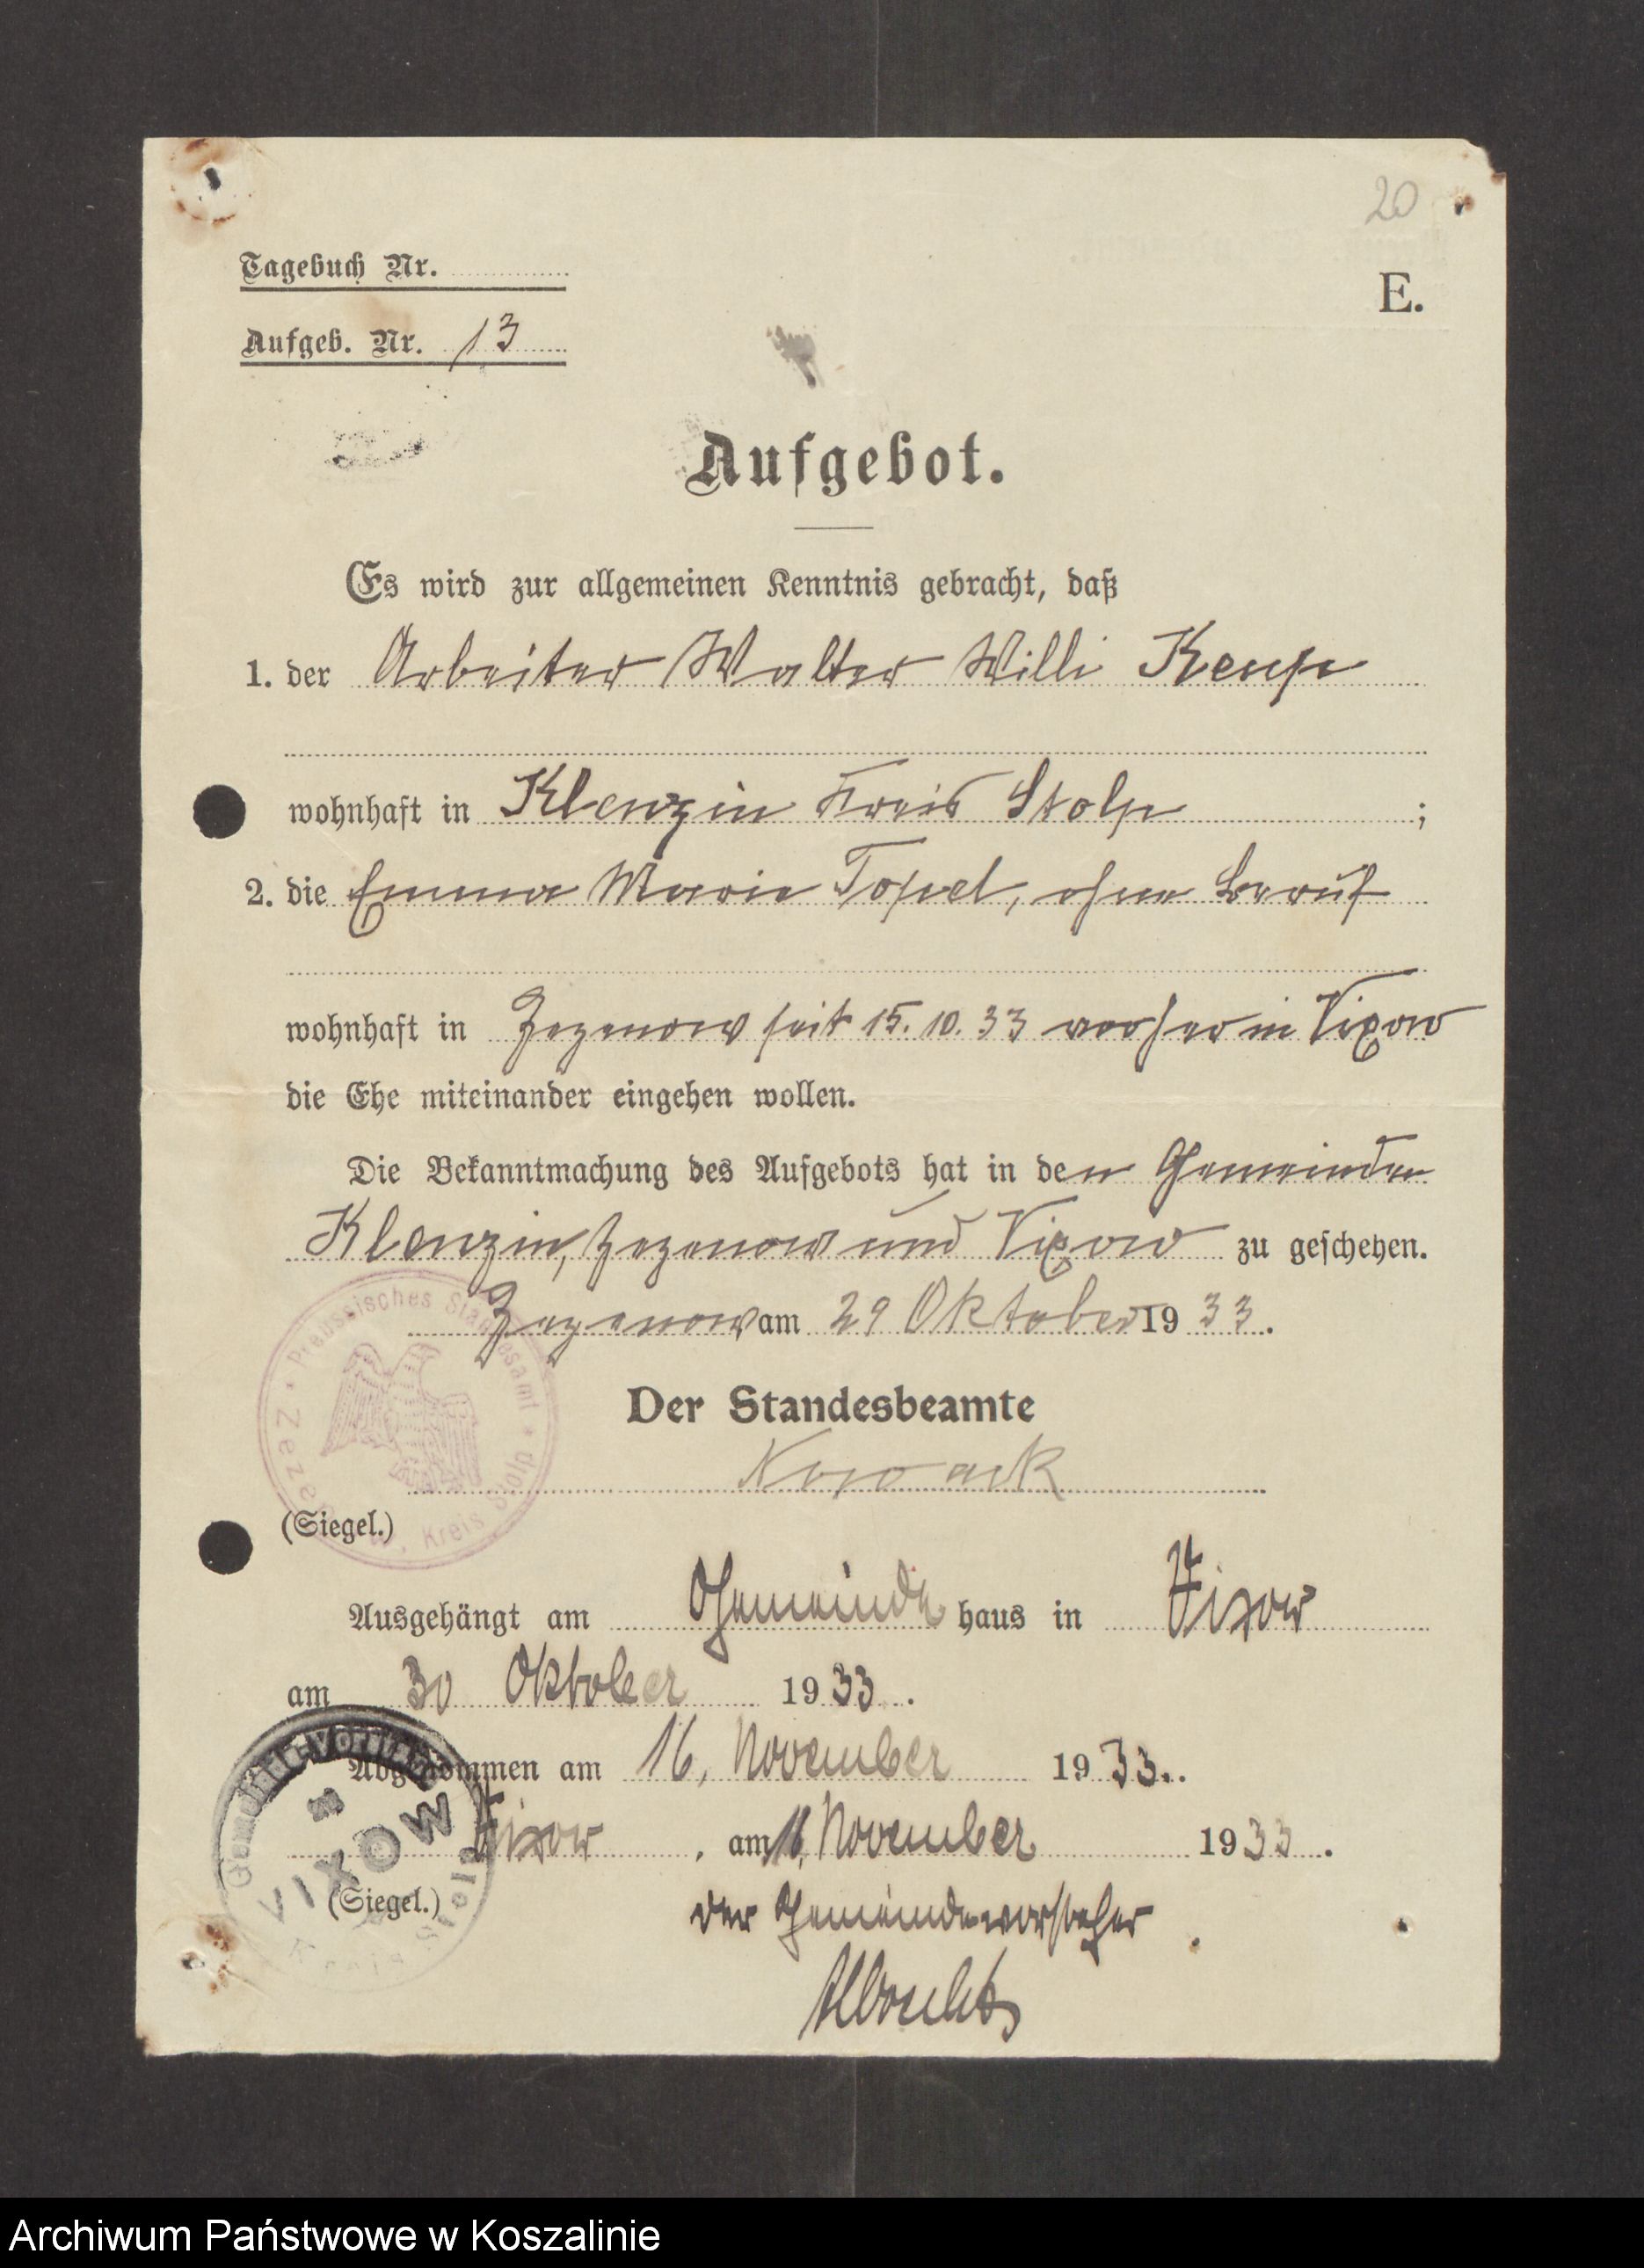 20
Tagebuch Nr.
E.
Aufgeb. Nr. 13
Aufgebot.
Es wird zur allgemeinen Kenntnis gebracht, daß
1. der Arbeiter Walter Willi
wohnhaft in Klenzin Kreis Stolp ;
2. die Emma Marie Topel, ohne Beruf
wohnhaft in Zezenow seit 15. 10. 33 vorher in Vixow
die Ehe miteinander eingehen wollen.
Die Bekanntmachung des Aufgebots hat in den Gemeinden
Klenzin, Zezenow und Vixow zu geschehen.
Zezenow am 29 Oktober 1933.
Preussisches Standesamt Zezenow, Kreis Stolp
Der Standesbeamte
(Siegel.)
Ausgehängt am Gemeinde haus in Vixow
am 30 Oktober 1933.
Abgenommen am 16. November 1933.
Vixow, am 16. November 1933.
VIXOW
(Siegel.)
der Gemeindevorsteher
Archiwum Państwowe w Koszalinie